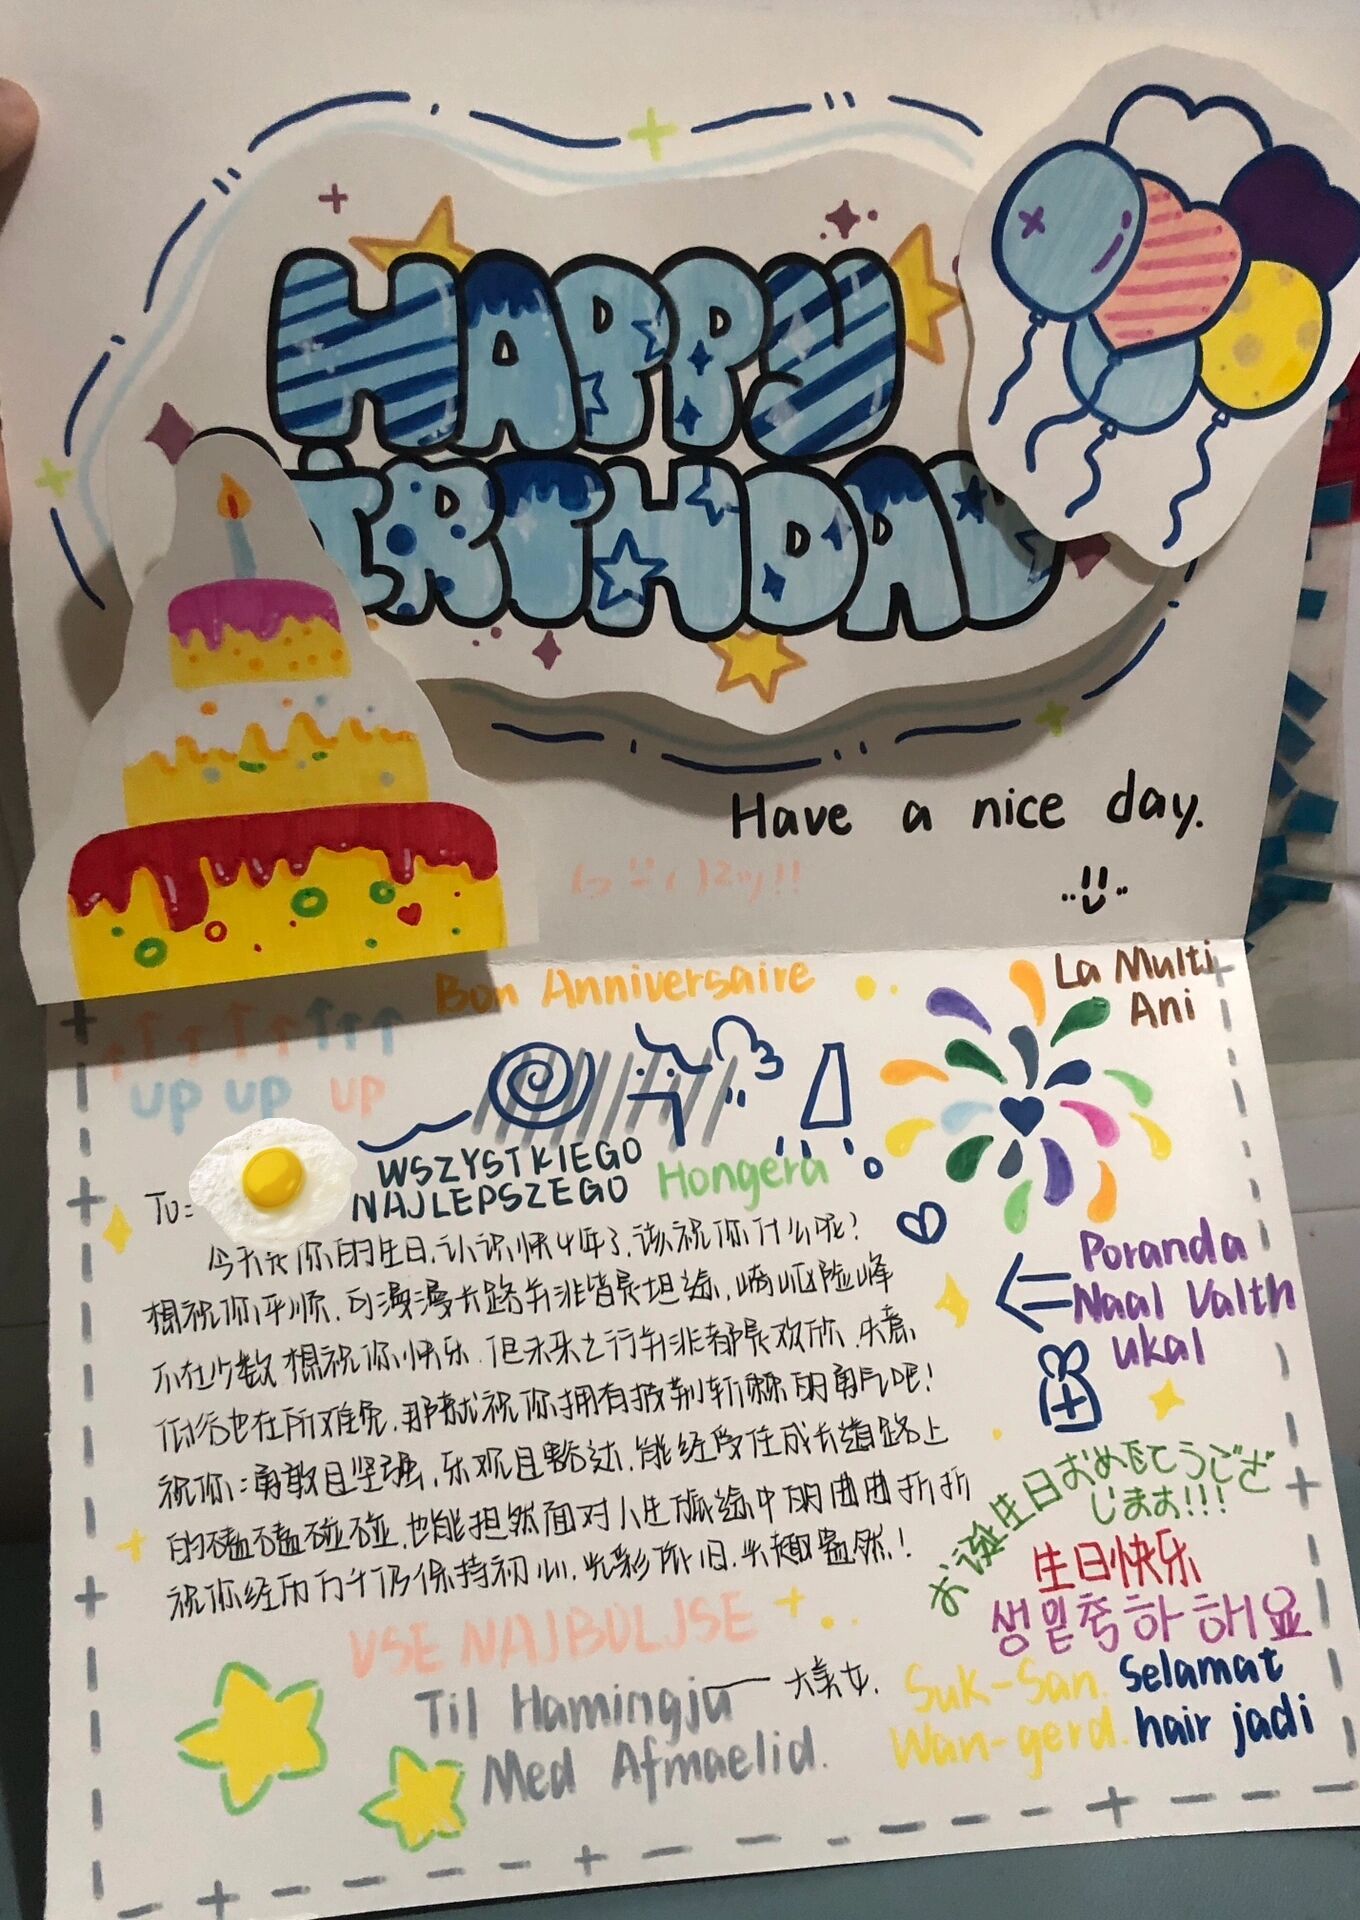 HAPPY
BIRTHDAY
Have a nice day.
Bon Anniversaire
La Multi
Ani
UP UP UP
WSZYSTKIEGO
NAJLEPSZEGO
Hongera
To:
今天是你的生日,认识快4年了,该祝你什么呢?
想祝你平顺,可漫漫长路并非皆是坦途,崎岖险峰
不在少数,想祝你快乐,但未来之行并非都是欢欣,失意
低谷也在所难免,那就祝你拥有披荆斩棘的勇气吧!
祝你:勇敢且坚强,乐观且豁达,能经受住成长道路上
的磕磕碰碰,也能坦然面对人生旅途中的曲曲折折
祝你经历万千仍保持初心,光彩依旧,兴趣盎然!
——大美女.
Poranda
Naal Valth
ukal
お誕生日おめでとうござ
います!!!
生日快乐
생일축하해요
VSE NAJBOLJSE
Til Hamingju
Med Afmaelid.
Suk-San.
Wan-gerd.
Selamat
hair jadi